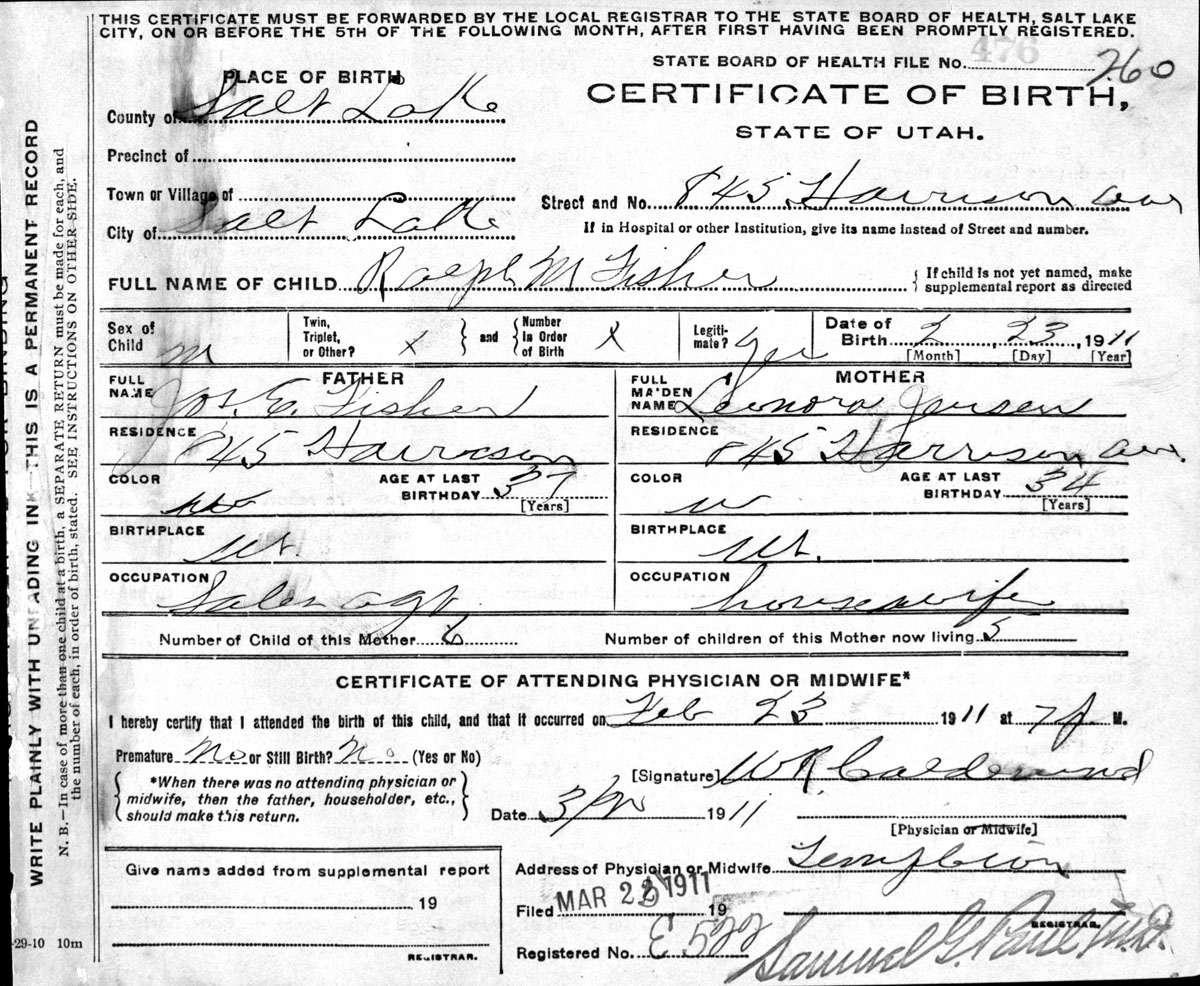 THIS CERTIFICATE MUST BE FORWARDED BY THE LOCAL REGISTRAR TO THE STATE BOARD OF HEALTH, SALT LAKE
CITY, ON OR BEFORE THE 5TH OF THE FOLLOWING MONTH, AFTER FIRST HAVING BEEN PROMPTLY REGISTERED.
476
STATE BOARD OF HEALTH FILE No. 260
PLACE OF BIRTH
CERTIFICATE OF BIRTH,
STATE OF UTAH.
County of Salt Lake
Precinct of
Town or Village of
Street and No. 845 Harrison ave
City of Salt Lake
If in Hospital or other Institution, give its name instead of Street and number.
FULL NAME OF CHILD Ralph M Fisher
{ If child is not yet named, make
supplemental report as directed
Sex of Child m
Twin, Triplet, or Other? x } and { Number In Order of Birth x
Legitimate? yes
Date of Birth 2, 23, 1911
[Month] [Day] [Year]
FATHER
FULL NAME Jos. E. Fisher
RESIDENCE 845 Harrison
COLOR
AGE AT LAST BIRTHDAY 37
[Years]
BIRTHPLACE Ut
OCCUPATION Sales agt.
MOTHER
FULL MAIDEN NAME Leonora Jensen
RESIDENCE 845 Harrison ave.
COLOR w
AGE AT LAST BIRTHDAY 34
[Years]
BIRTHPLACE Ut.
OCCUPATION housewife
Number of Child of this Mother 6 Number of children of this Mother now living 5
CERTIFICATE OF ATTENDING PHYSICIAN OR MIDWIFE*
I hereby certify that I attended the birth of this child, and that it occurred on Feb 23 1911 at 7 p M.
Premature No or Still Birth? No (Yes or No)
{ *When there was no attending physician or
midwife, then the father, householder, etc.,
should make this return. }
[Signature] W R Calderwood
Date 1911
[Physician or Midwife]
Address of Physician or Midwife
Filed MAR 22 1911 19
REGISTRAR.
Registered No. E 522
Samuel G. Paul M.D.
Give name added from supplemental report
19
REGISTRAR.
-29-10 10m
WRITE PLAINLY WITH UNFADING INK—THIS IS A PERMANENT RECORD
N. B.—In case of more than one child at a birth, a SEPARATE RETURN must be made for each, and
the number of each, in order of birth, stated. SEE INSTRUCTIONS ON OTHER SIDE.